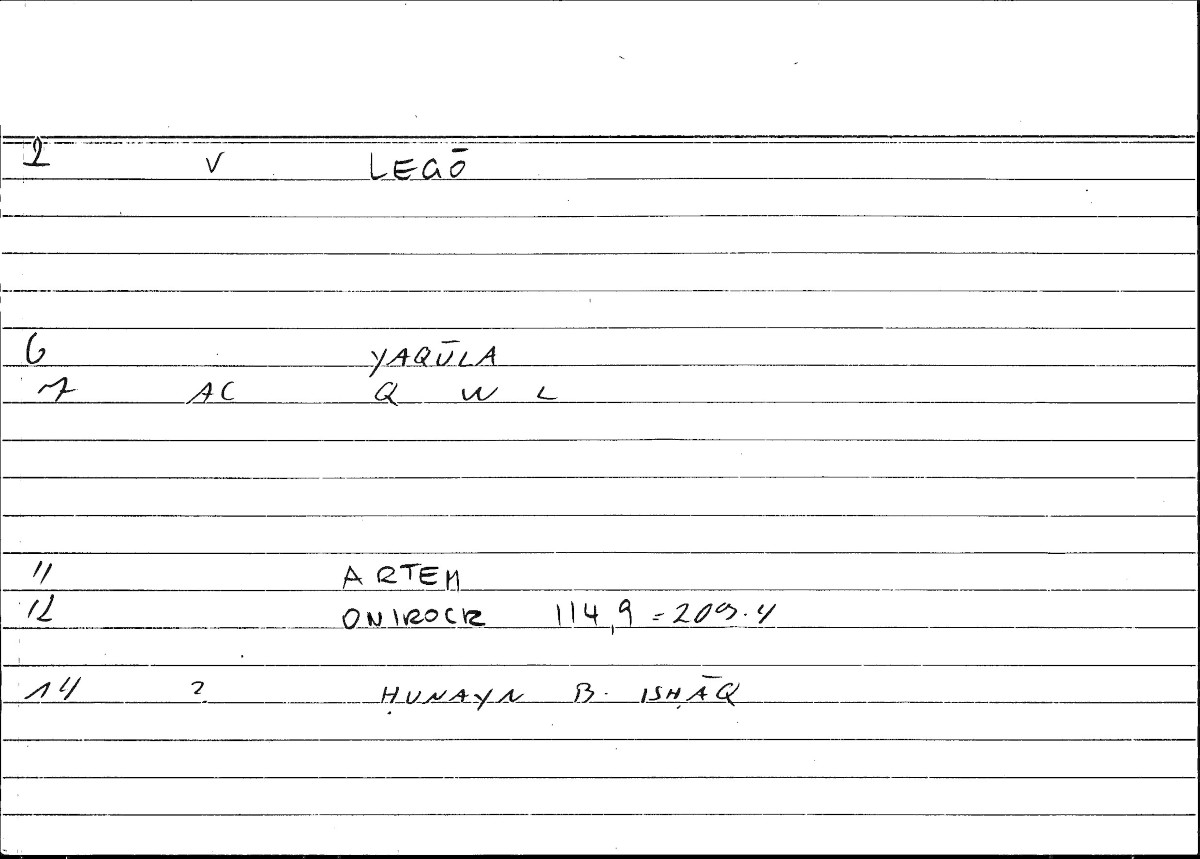 2 V LEGŌ
6 YAQŪLA
7 AC Q W L
11 ARTEM
12 ONIROCR 114,9 = 209.4
14 ? ḤUNAYN B. ISḤĀQ